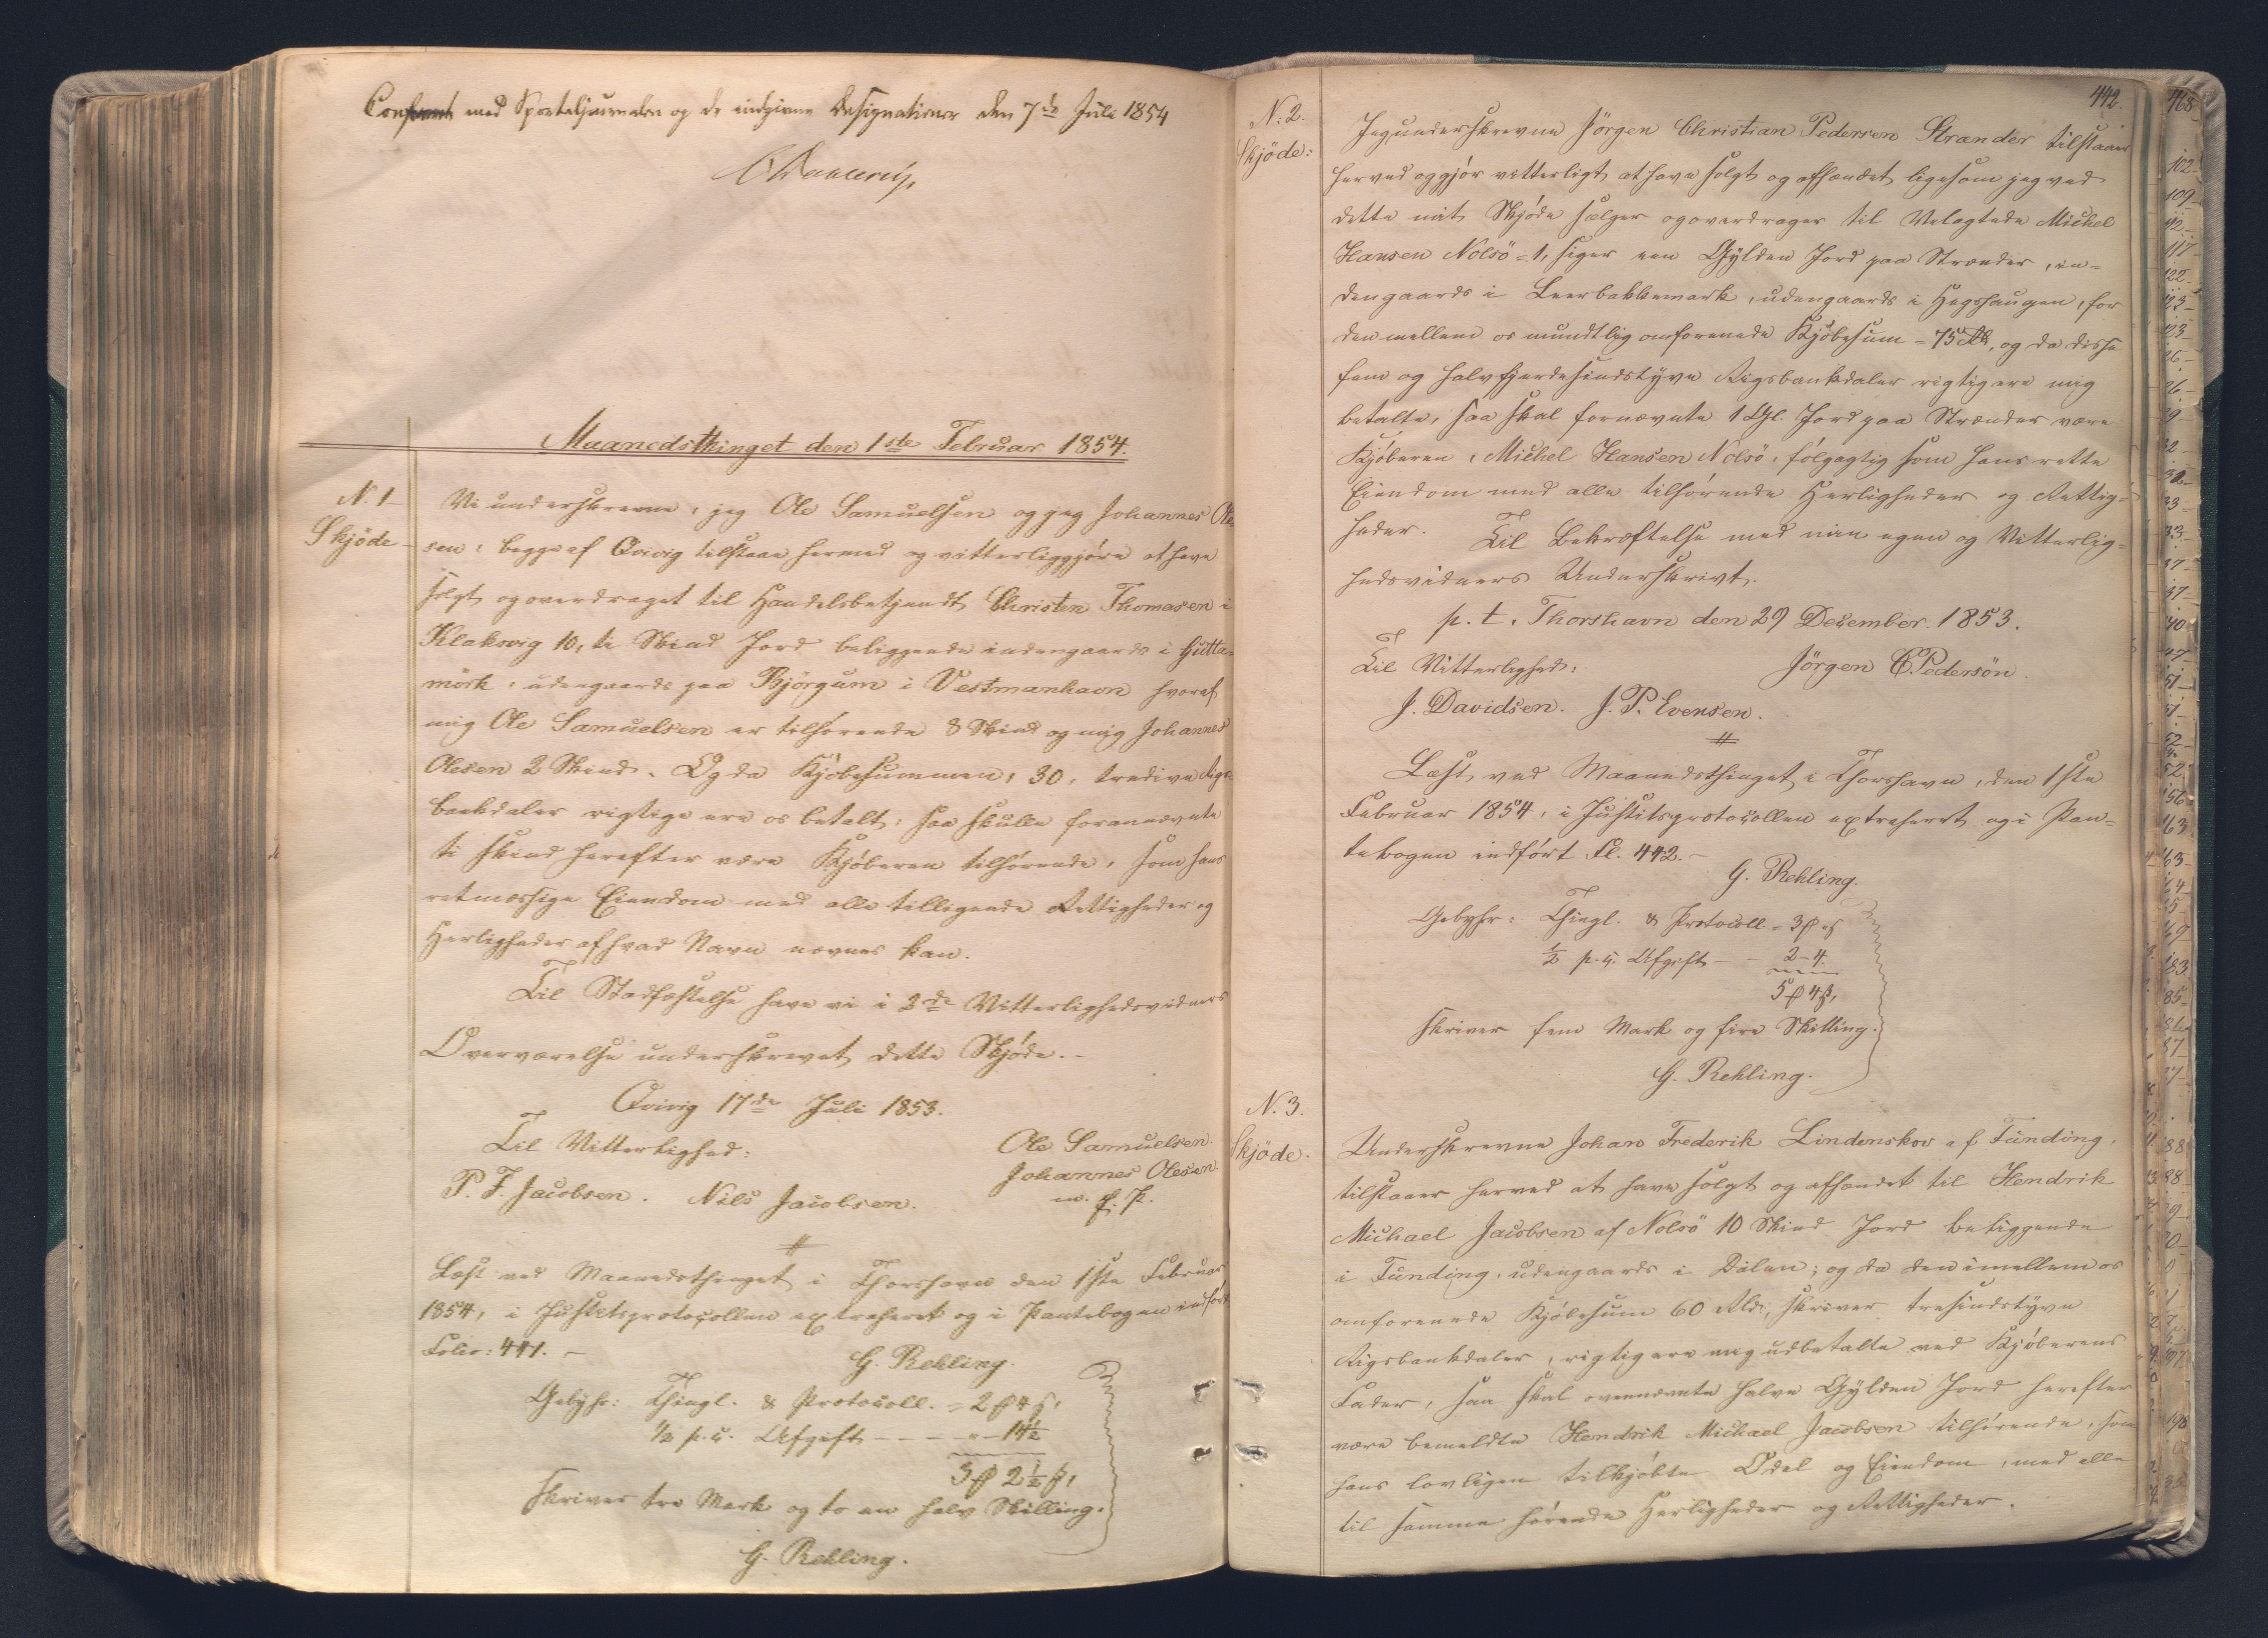 Conferert med Sportuljournalen og de indgivne Designationer den 7de Juli 1854
Maanedsthinget den 1ste Februar 1854.
N. 1
Skjöde
Vi underskrevne, jeg Ole Samuelsen og jeg Johannes Ole-
sen, begge af Qvivig tilstaae hermed og vitterliggjöre at have
solgt og overdraget til Handelsbetjendt Christen Thomasen i
Klaksvig 10, ti Skind Jord beliggende indengaards i Gutta-
mörk, udengaards paa Björgum i Vestmanhavn hvoraf
mig Ole Samuelsen er tilhörende 8 Skind og mig Johannes
Olesen 2 Skind. Og da Kjöbesummen, 30, tredive Rigs-
bankdaler rigtige ere os betalt, saa skulle forannævnte
ti Skind herefter være Kjöberen tilhörende, som hans
retmæssige Eiendom med alle tilligende Rettigheder og
Herligheder af hvad Navn nævnes kan.
Til Stadfæstelse have vi i 2de Vitterlighedsvidners
Overværelse underskrevet dette Skjöde.-
Qvivig 17de Juli 1853.
Til Vitterlighed:
Ole Samuelsen.
Johannes Olesen
m. f. P.
P. F. Jacobsen. Nils Jacobsen.
Læst ved Maanedsthinget i Thorshavn den 1ste Februar
1854, i Justitsprotocollen extraheret og i Pantebogen indfört
Folio: 441. -
G. Rehling.
Gebyhr: Thingl. & Protocoll. = 2 ₰ 4 ß,
1/2 p.c. Afgift - - - - " - 14 1/2
3 ₰ 2 1/2 ß,
skriver tre Mark og to en halv Skilling.
G. Rehling.
442.
N. 2.
Skjöde:
Jeg underskrevne Jörgen Christian Pedersen Strænder tilstaaer
herved og gjör vitterligt at have solgt og afhændet ligesom jeg ved
dette mit Skjöde sælger og overdrager til Velagtede Michel
Hansen Nolsö = 1, siger een Gylden Jord paa Strænder, in-
dengaards i Leerbakkemark, udengaards i Hegshaugen, for
den mellem os mundtlig omforenede Kjöbesum = 75 Rbd, og da disse
fem og halvfjerdesindstyve Rigsbankdaler rigtig ere mig
betalte, saa skal fornævnte 1 Gl. Jord paa Strænder være
Kjöberen, Michel Hansen Nolsö, fölgagtig som hans rette
Eiendom med alle tilhörende Herligheder og Rettig-
heder. Til Bekræftelse med min egen og Vitterlig-
hedsvidners Underskrivt.
p. t. Thorshavn den 29 December 1853.
Til Vitterlighed:
Jörgen C Pedersön.
J. Davidsen. J. P. Evensen.
Læst ved Maanedsthinget i Thorshavn, den 1ste
Februar 1854, i Justitsprotocollen extraheret og i Pan-
tebogen indfört Fl. 442. -
G. Rehling.
Gebyhr: Thingl. & Protocoll. = 3 ₰ " ß
1/2 p.c. Afgift - - 2 - 4.
5 ₰ 4 ß,
skriver fem Mark og fire Skilling.
G. Rehling.
N. 3.
Skjöde.
Underskrevne Johan Frederik Lindenskov af Funding,
tilstaaer herved at have solgt og afhændet til Hendrik
Michael Jacobsen af Nolsö 10 Skind Jord beliggende
i Funding, udengaards i Dalen; og da den imellem os
omforenede Kjöbesum 60 Rbd, skriver tresindstyve
Rigsbankdaler, rigtig ere mig udbetalte ved Kjöberens
Fader, saa skal ovennævnte halve Gylden Jord herefter
være bemeldte Hendrik Michael Jacobsen tilhörende, som
hans lovligen tilkjöbte Odel og Eiendom, med alle
til samme hörende Herligheder og Rettigheder.